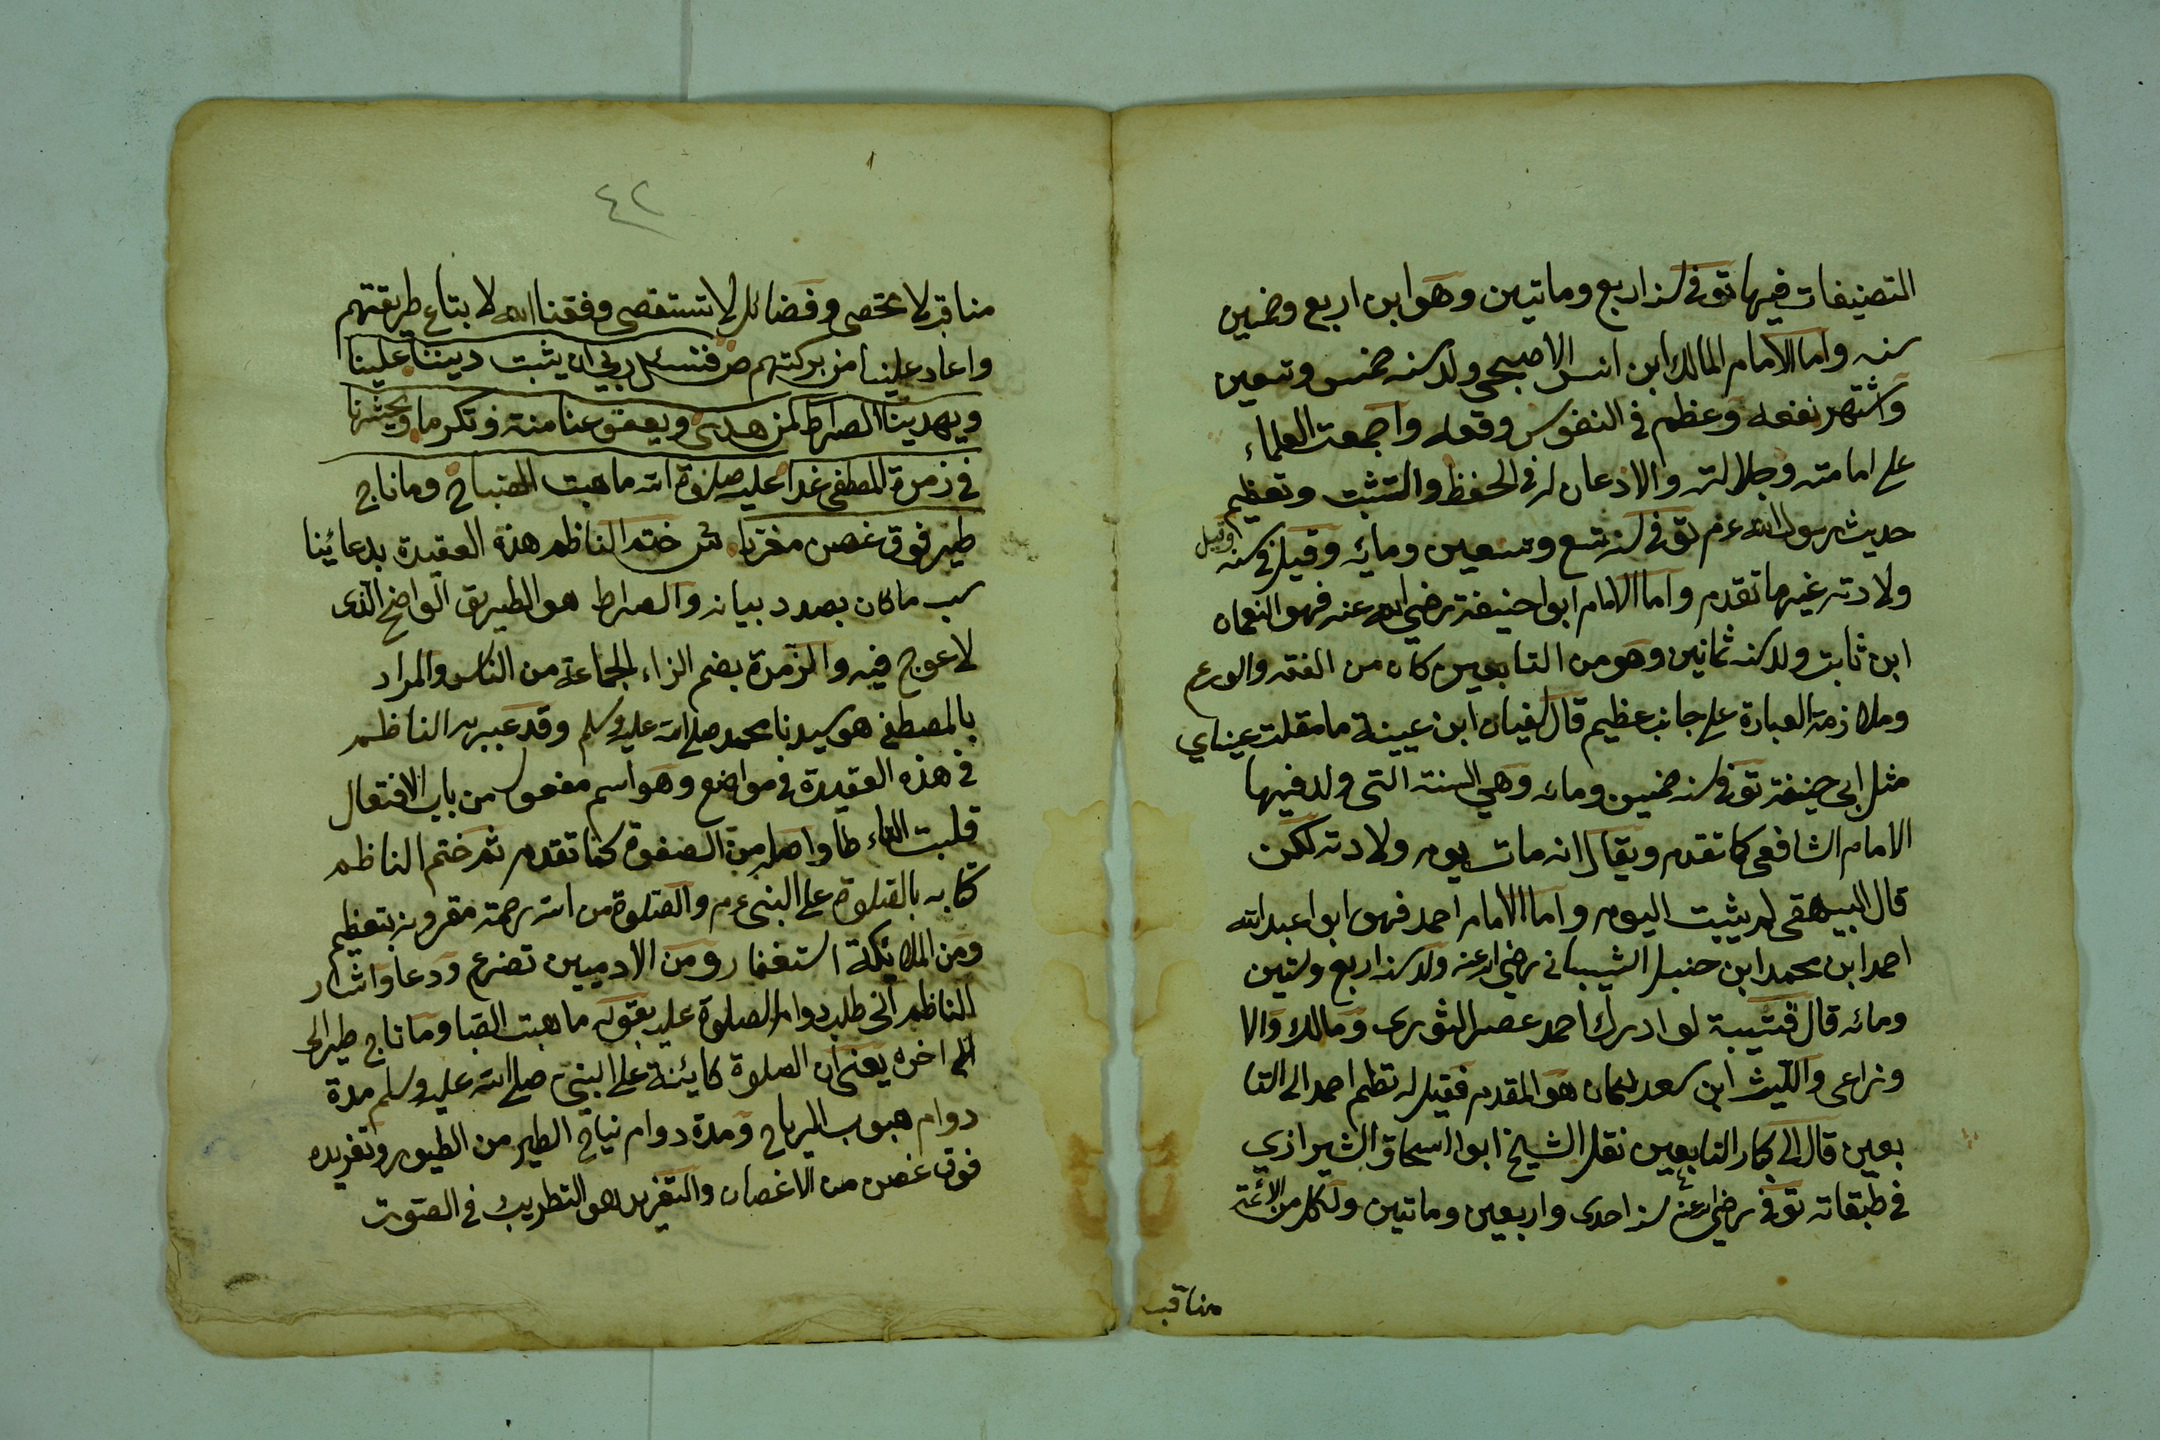 التصنيفات فيها توفى سنة اربع وماتين وهو ابن اربع وخمين
سنه واما الامام المالك ابن انس الاصبحي ولد سنه خمس وتسعين
واشتهر نفعه وعظم في النفوس وقعه واجمعت العلماء
على امامته وجلالته والاذعان له في الحفظ والتثبت وتعظيم
حديث رسول الله عم توفى سنة تسع وسبعين ومايه وقيل في سنه
وقيل
ولادته غير ما تقدم واما الامام ابوا حنيفة رضي الله عنه فهو النعمان
ابن ثابت ولد سنه ثمانين وهو من التابعين كان من الفقه والورع
وملازمة العبادة على جانب عظيم قال سفيان ابن عيينة ما مقلت عيناي
مثل ابى حنيفة توفى سنه خمسين ومائه وهي السنة التى ولد فيها
الامام الشافعى كما تقدم ويقال انه مات يوم ولادته لكن
قال البيهقى لم يثبت اليوم واما الامام احمد فهو ابوا عبد الله
احمد ابن محمد ابن حنبل الشيبانى رضي الله عنه ولد سنة اربع وستين
ومائه قال قتيبة لو ادرك احمد عصر الثورى ومالك والا
وزاعى والليث ابن سعد لكان هو المقدم فقيل له تظم احمد الى التا
بعين قال الى كبار التابعين نقل الشيخ ابوا اسحاق الشيرازي
في طبقاته توفى رضي الله عنه سنة احدى واربعين وماتين ولكل من الائمة
مناقب
٤٢
مناقب لا تحصى وفضائل لا تستقصى وفقنا الله لابتاع طريقتهم
واعاد علينا من بركتهم ص فنسئل ربي ان يثبت ديننا علينا
ويهدينا الصراط لمن هدى ويعفو عنا منة وتكرما ويحشرنا
في زمرة المصطفى غدا عليه صلوة الله ما هبت الصباح وما ناح
طير فوق غصن مغردا ش ختم الناظم هذه العقيدة بدعائنا
سب ما كان بصدد بيانه والصراط هو الطريق الواضح الذى
لا عوج فيه والزمرة بضم الزاء الجماعة من الناس والمراد
بالمصطفى هو سيدنا محمد صلى الله عليه وسلم وقد عبر به الناظم
في هذه العقيدة في مواضع وهو اسم مفعول من باب الافتعال
قلبت التاء طا واصله من الصفوة كما تقدم ثم ختم الناظم
كتابه بالصلوة على النبى عم والصلوة من الله رحمة مقرونة بتعظيم
ومن الملائكة استغفار ومن الادميين تضرع ودعا واشار
الناظم الى طلب دوام الصلوة عليه بقوله ما هبت الصبا وما ناح طير الى
الى اخره يعنى ان الصلوة كائنة على النبى صلى الله عليه وسلم مدة
دوام هبوب الرياح ومدة دوام نياح الطير من الطيور وتغريده
فوق غصن من الاغصان والتغريد هو التطريب في الصوت